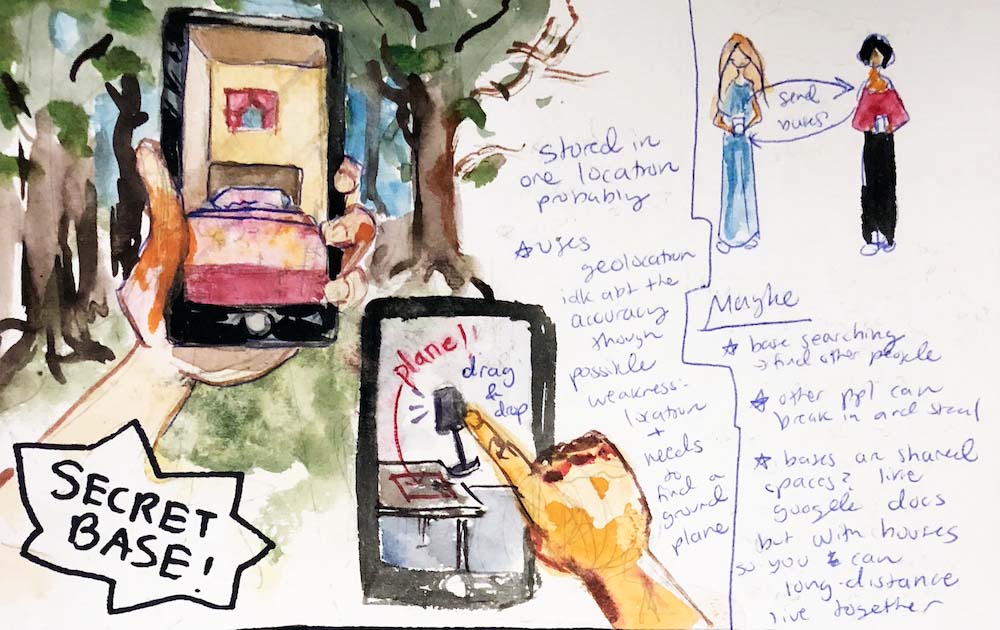 SECRET
BASE!
plane!!
drag
&
drop
stored in
one location
probably
☆ uses
geolocation
idk abt the
accuracy
though
possible
weakness:
location
+
needs
to
find a
ground
plane
send
bases
Maybe
☆ base searching
→ find other people
☆ other ppl can
break in and steal
☆ bases are shared
spaces? like
google docs
but with houses
so you can
long-distance
live together